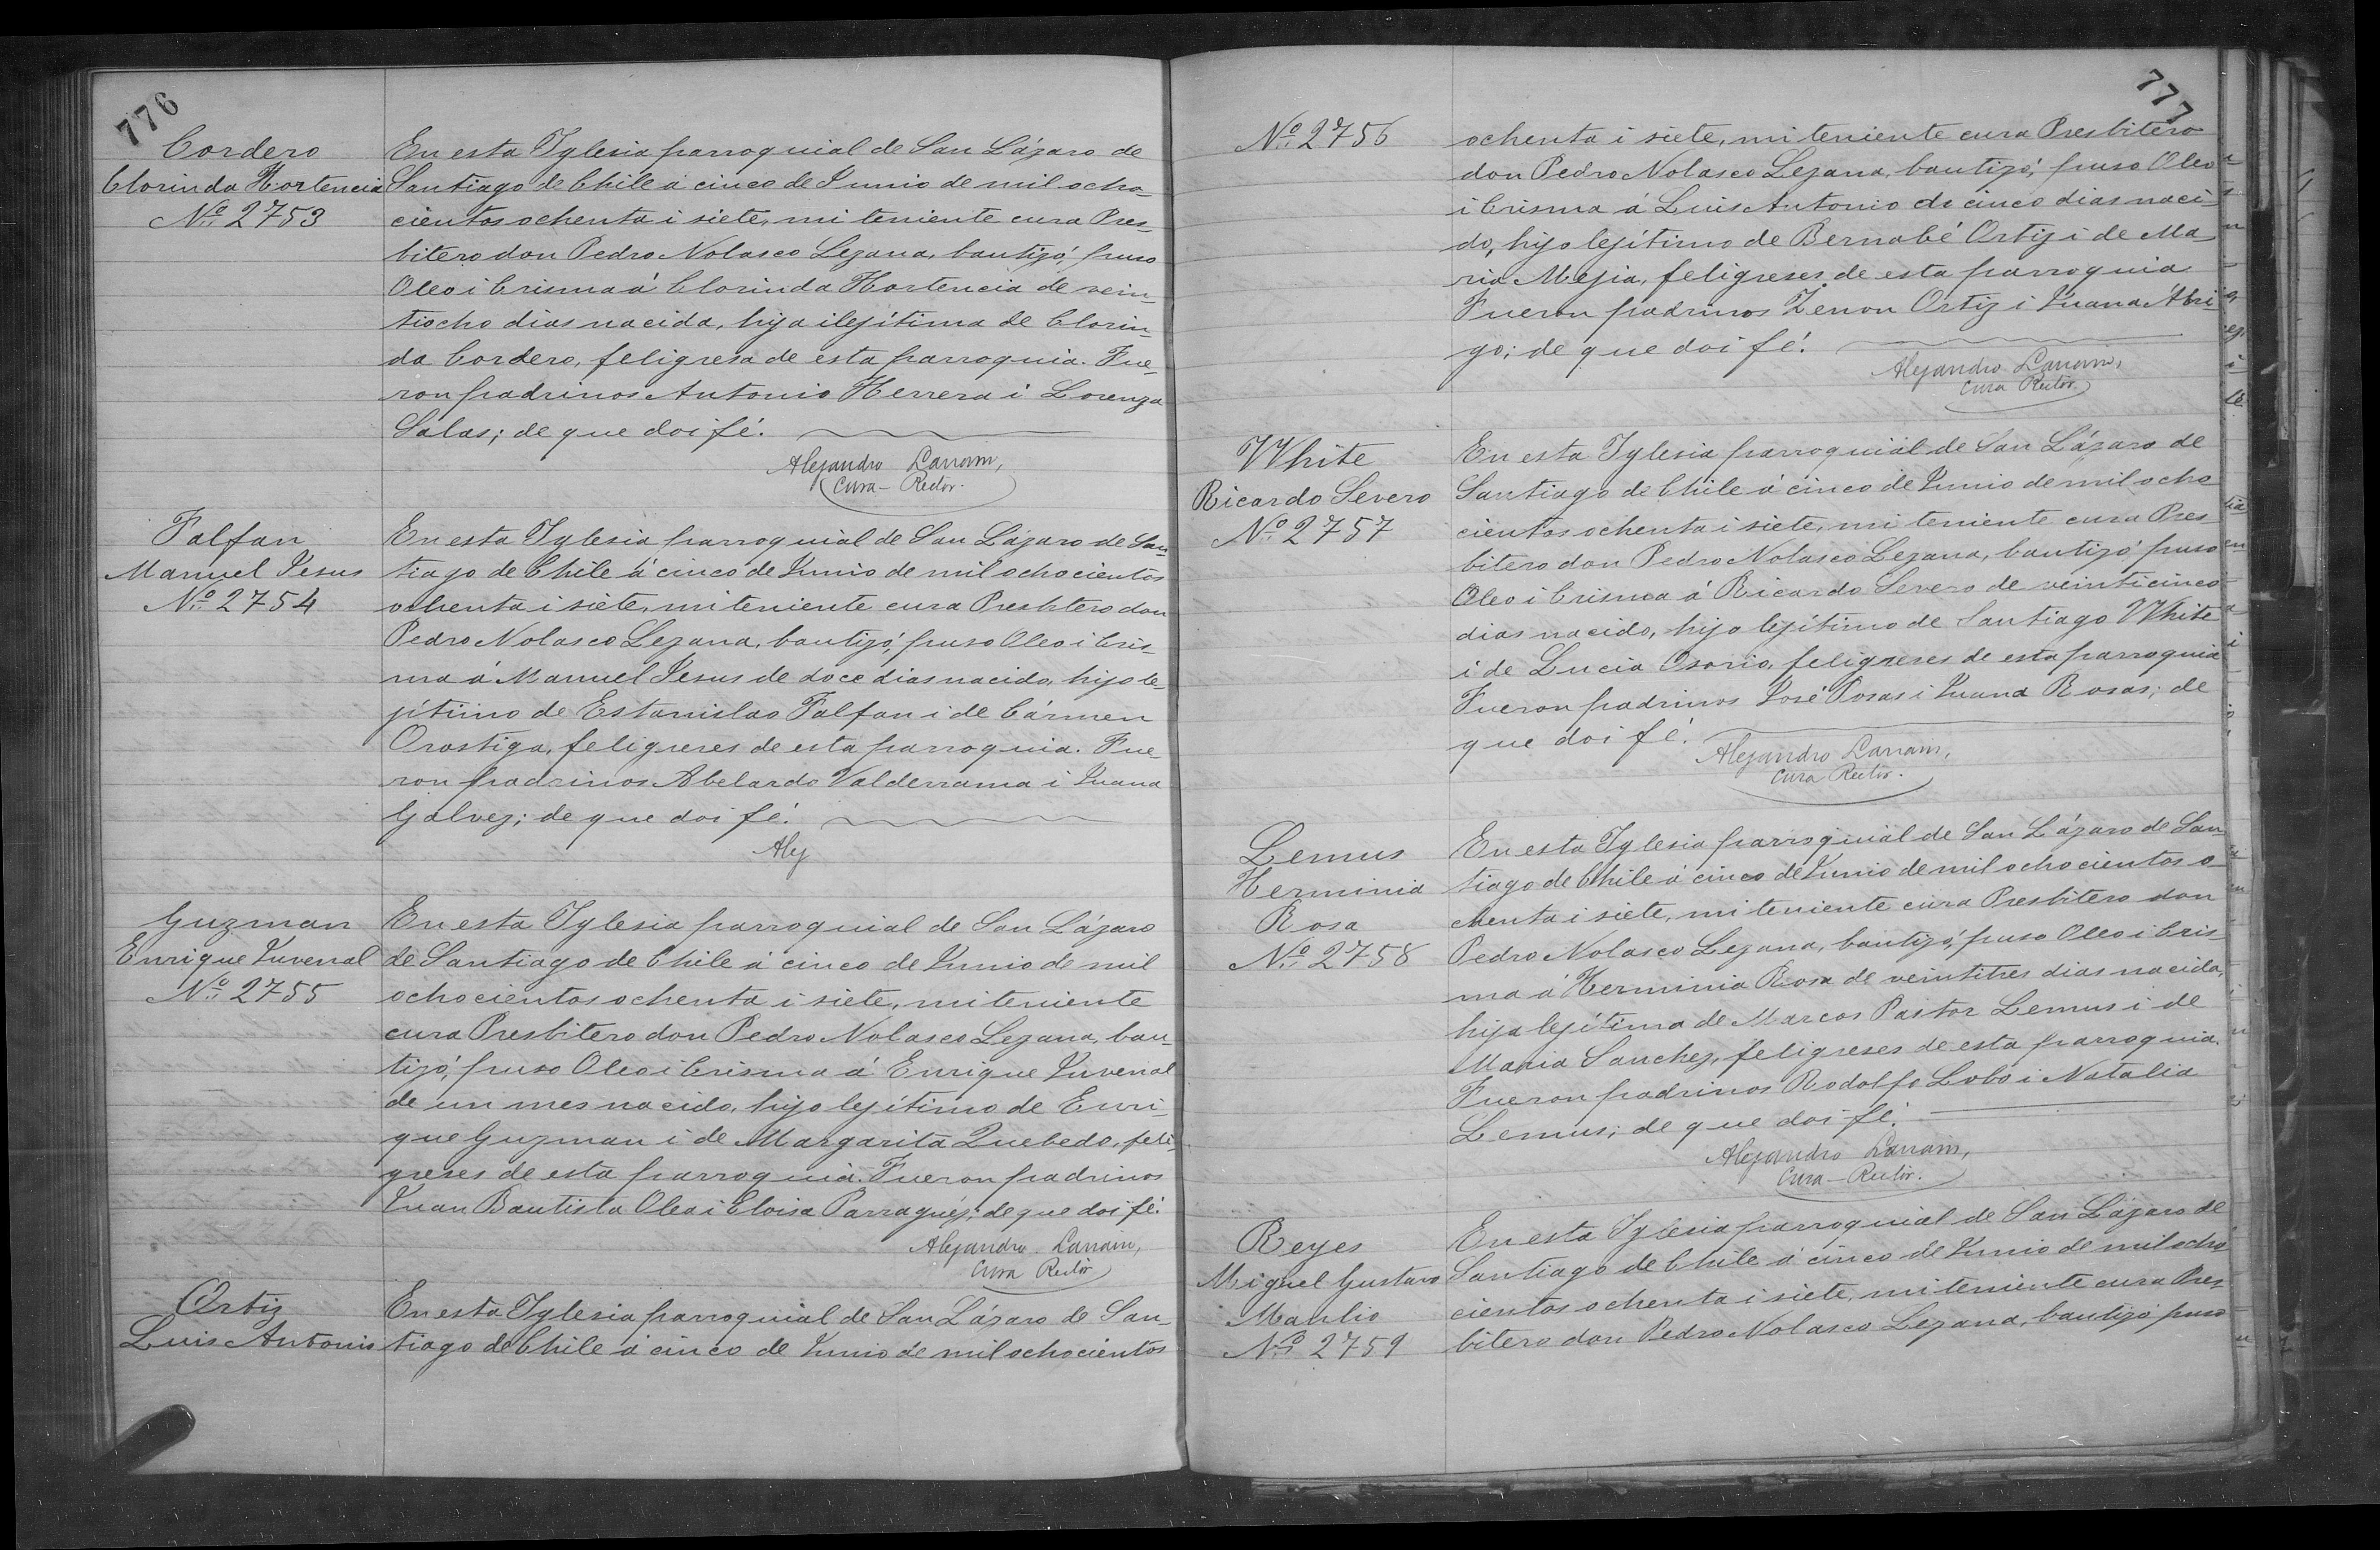 776
Cordero
Clorinda Hortencia
Nº 2753
En esta Iglesia parroquial de San Lázaro de
Santiago de Chile á cinco de Junio de mil ocho-
cientos ochenta i siete, mi teniente cura Pres-
bitero don Pedro Nolasco Lezana, bautizó, puso
Oleo i Crisma á Clorinda Hortencia de vein-
tiocho dias nacida, hija ilejítima de Clorin-
da Cordero, feligresa de esta parroquia. Fue-
ron padrinos Antonio Herrera i Lorenza
Salas; de que doi fé.
Alejandro Larrain,
Cura-Rector.
Falfan
Manuel Jesus
Nº 2754
En esta Iglesia parroquial de San Lázaro de San-
tiago de Chile á cinco de Junio de mil ochocientos
ochenta i siete, mi teniente cura Presbitero don
Pedro Nolasco Lezana, bautizó, puso Oleo i Cris-
ma á Manuel Jesus de doce dias nacido, hijo le-
jítimo de Estanislao Falfan i de Cármen
Orostiga, feligreses de esta parroquia. Fue-
ron padrinos Abelardo Valderrama i Juana
Galvez; de que doi fé.
Alej
Guzman
Enrique Juvenal
Nº 2755
En esta Iglesia parroquial de San Lázaro
de Santiago de Chile á cinco de Junio de mil
ochocientos ochenta i siete, mi teniente
cura Presbitero don Pedro Nolasco Lezana, bau-
tizó, puso Oleo i Crisma á Enrique Juvenal
de un mes nacido, hijo lejítimo de Enri-
que Guzman i de Margarita Quebedo, feli-
greses de esta parroquia. Fueron padrinos
Juan Bautista Olea i Eloisa Parraguéz; de que doi fé.
Alejandro Larrain,
Cura Rector
Ortiz
Luis Antonio
En esta Iglesia parroquial de San Lázaro de San-
tiago de Chile á cinco de Junio de mil ochocientos
777
Nº 2756
ochenta i siete, mi teniente cura Presbitero
don Pedro Nolasco Lezana, bautizó, puso Oleo
i Crisma á Luis Antonio de cinco dias naci-
do, hijo lejítimo de Bernabé Ortiz i de Ma-
ria Mejia, feligreses de esta parroquia
Fueron padrinos Zenon Ortiz i Juana Abri-
go; de que doi fé.
Alejandro Larrain,
Cura Rector
White
Ricardo Severo
Nº 2757
En esta Iglesia parroquial de San Lázaro de
Santiago de Chile á cinco de Junio de mil ocho
cientos ochenta i siete, mi teniente cura Pres
bitero don Pedro Nolasco Lezana, bautizó puso
Oleo i Crisma á Ricardo Severo de veinticinco
dias nacido, hijo lejítimo de Santiago White
i de Lucia Osorio, feligreses de esta parroquia
Fueron padrinos José Rosas i Juana Rosas; de
que doi fé.
Alejandro Larrain,
Cura Rector.
Lemus
Herminia
Rosa
Nº 2758
En esta Iglesia parroquial de San Lázaro de San-
tiago de Chile á cinco de Junio de mil ochocientos o
chenta i siete, mi teniente cura Presbitero don
Pedro Nolasco Lezana, bautizó, puso Oleo i Cris-
ma á Herminia Rosa de veintitres dias nacida,
hija lejítima de Marcos Pastor Lemus i de
Maria Sanchez, feligreses de esta parroquia.
Fueron padrinos Rodolfo Lobo i Natalia
Lemus; de que doi fé.
Alejandro Larrain,
Cura-Rector.
Reyes
Miguel Gustavo
Manlio
Nº 2759
En esta Iglesia parroquial de San Lázaro de
Santiago de Chile á cinco de Junio de mil ocho
cientos ochenta i siete, mi teniente cura Pres-
bitero don Pedro Nolasco Lezana, bautizó puso